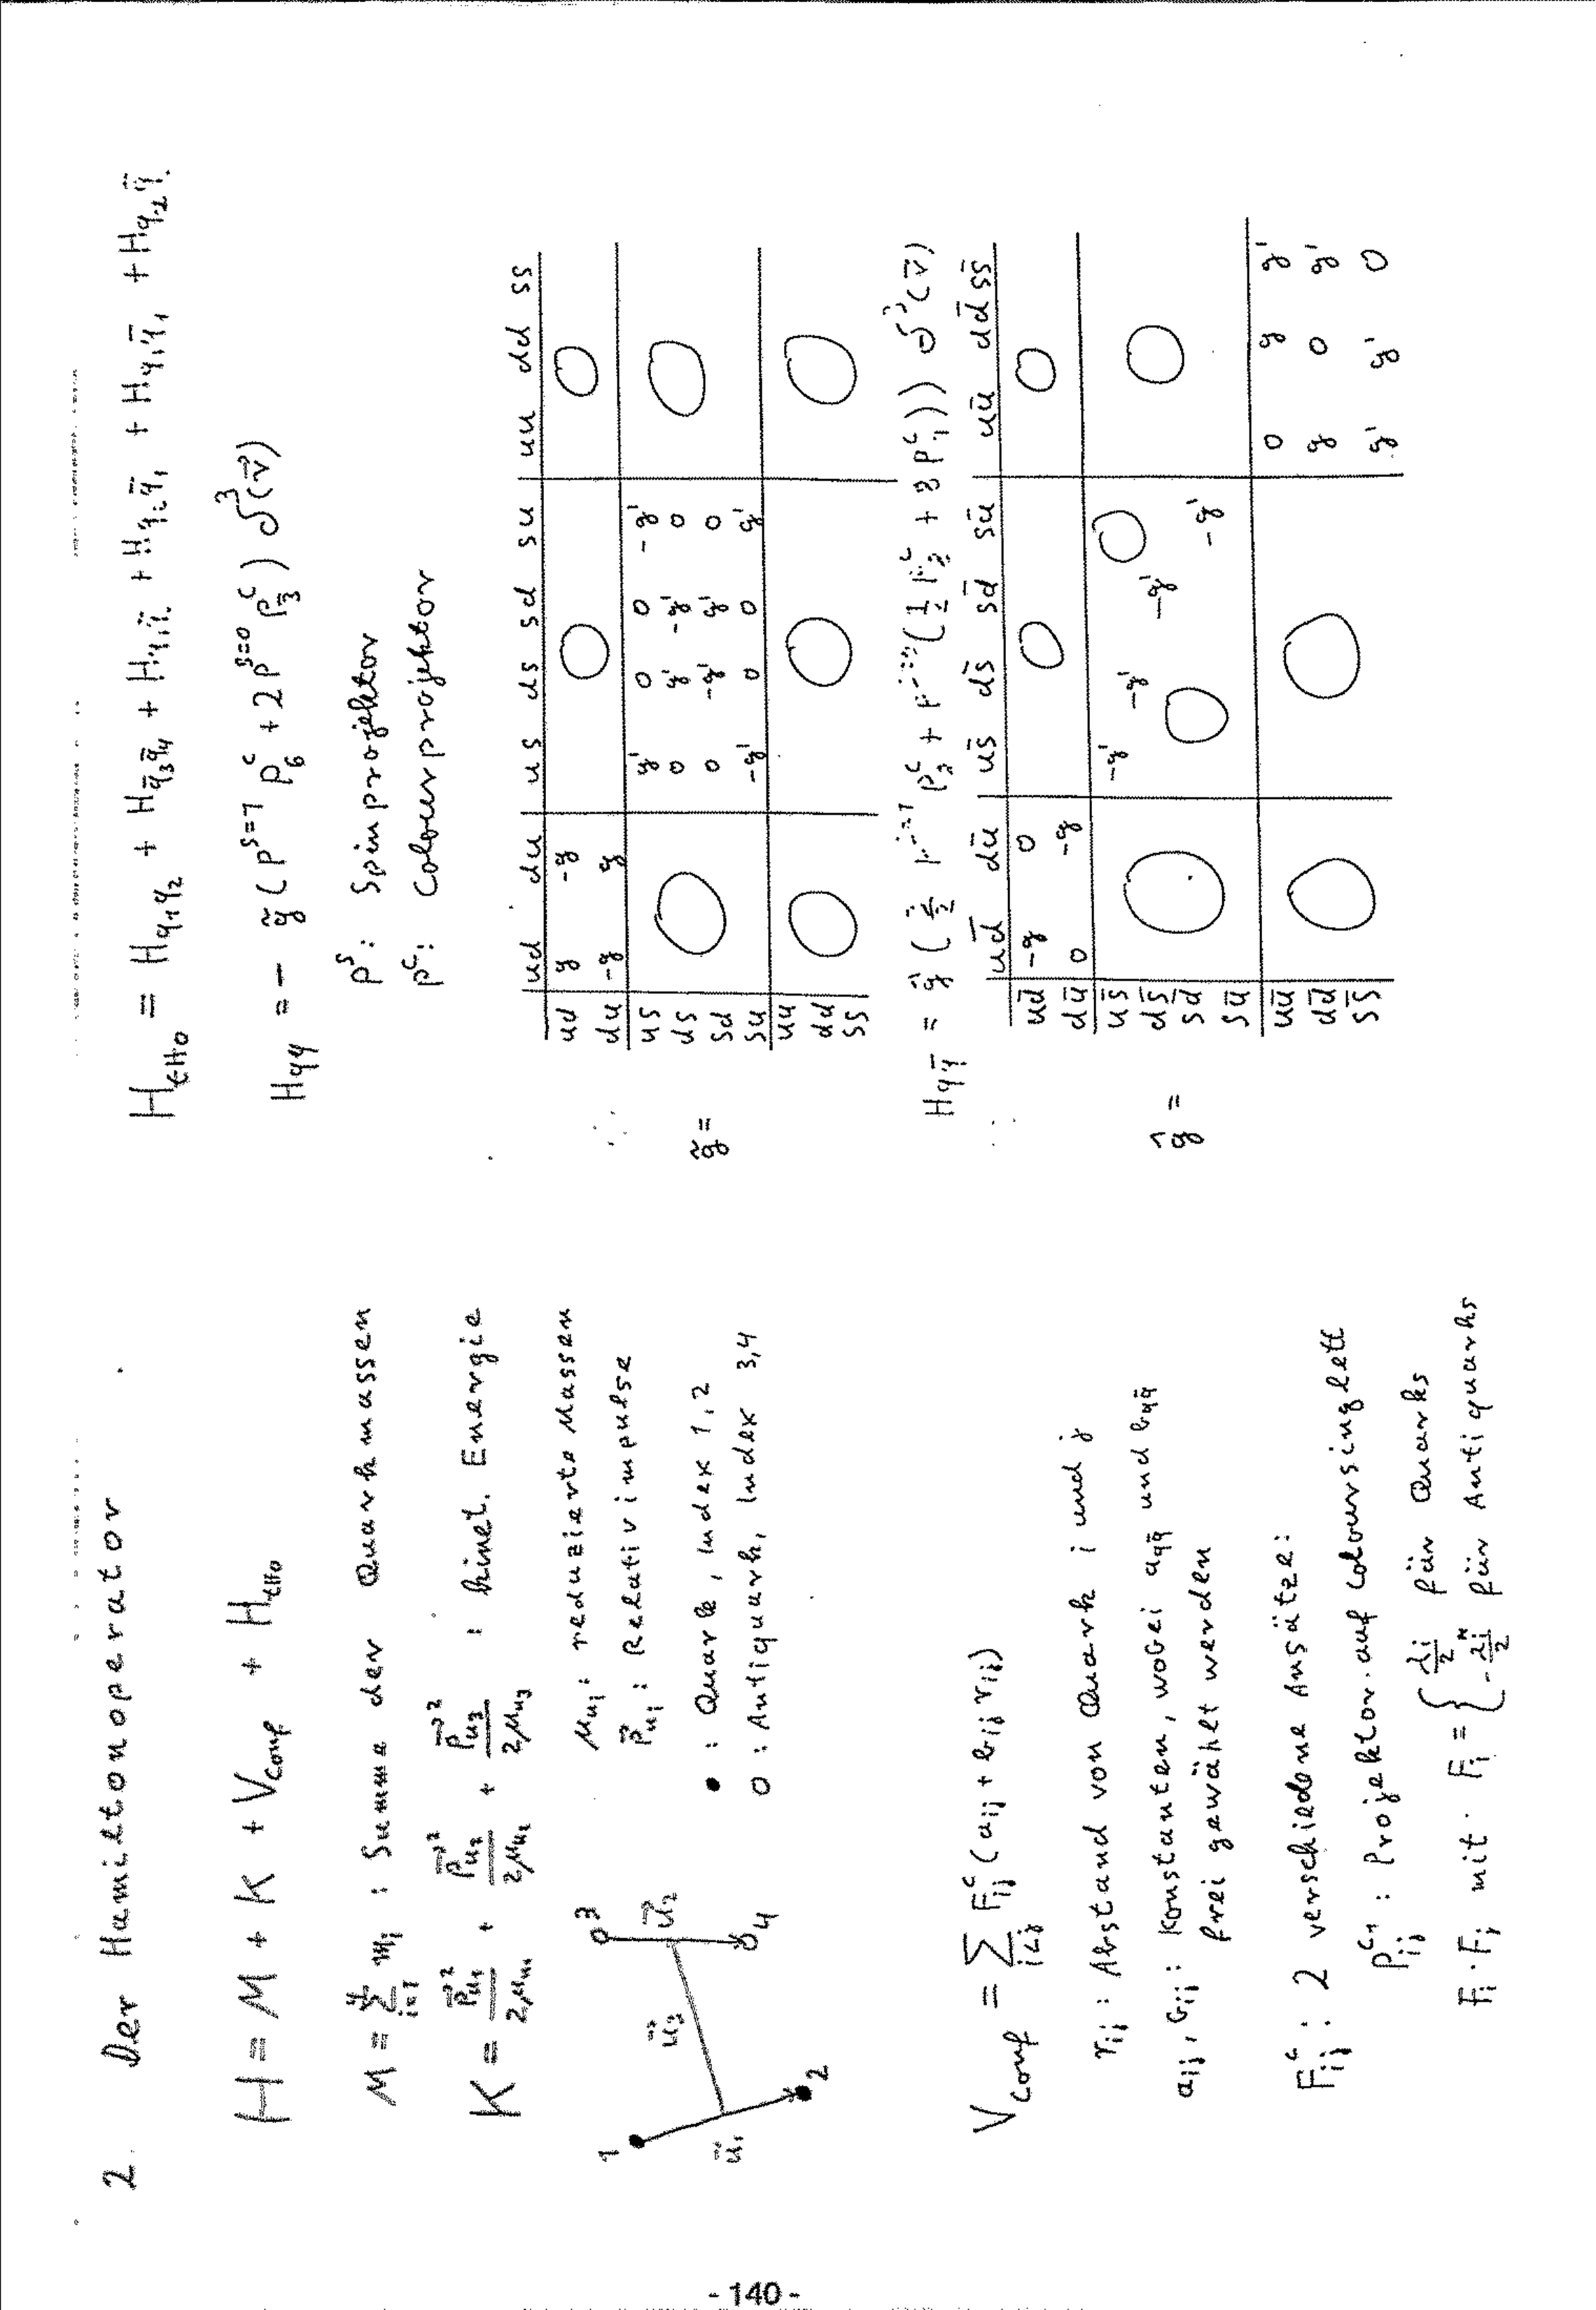 2. Der Hamiltonoperator
H = M + K + V_conf + H_tHo
M = Σ_{i=1}^{4} m_i : Summe der Quarkmassen
K = \vec{p}_{u_1}^2 / 2μ_{u_1} + \vec{p}_{u_2}^2 / 2μ_{u_2} + \vec{p}_{u_3}^2 / 2μ_{u_3} : kinet. Energie
μ_{u_i} : reduzierte Massen
\vec{p}_{u_i} : Relativimpulse
1 2 3 4 \vec{u}_1 \vec{u}_2 \vec{u}_3
● : Quark, Index 1,2
o : Antiquark, Index 3,4
V_conf = Σ_{i<j} F_{ij}^c (a_{ij} + b_{ij} r_{ij})
r_{ij} : Abstand von Quark i und j
a_{ij}, b_{ij} : Konstanten, wobei a_{q\bar{q}} und b_{q\bar{q}}
frei gewählt werden
F_{ij}^c : 2 verschiedene Ansätze:
P_{ij}^{c=1} : Projektor auf Coloursinglett
F_i · F_j mit F_i = { λ_i/2 für Quarks
-λ_i^*/2 für Antiquarks
H_tHo = H_{q_1q_2} + H_{\bar{q}_3\bar{q}_4} + H_{q_1\bar{q}} + H_{q_2\bar{q}} + H_{q_1\bar{q}} + H_{q_2\bar{q}}
H_{qq} = - \tilde{g} (P^{S=1} P_6^c + 2 P^{S=0} P_{\bar{3}}^c) δ^3(\vec{r})
P^S : Spinprojektor
P^C : Colourprojektor
ud du us ds sd su uu dd ss
ud g -g 0 0
du -g g
us g' 0 0 -g'
ds 0 0 g' -g' 0 0
sd 0 -g' g' 0
su -g' 0 0 g'
uu
dd 0 0 0
ss
\tilde{g} =
H_{q\bar{q}} = \hat{g} ( P_3^c + ( 1/2 + 8 P_1^c)) δ^3(\vec{r})
u\bar{d} d\bar{u} u\bar{s} d\bar{s} s\bar{d} s\bar{u} u\bar{u} d\bar{d} s\bar{s}
u\bar{d} -g 0 0 0
d\bar{u} 0 -g
u\bar{s} -g' 0
d\bar{s} 0 -g' 0
s\bar{d} -g'
s\bar{u} 0 -g'
u\bar{u} 0 g g'
d\bar{d} 0 0 g 0 g'
s\bar{s} g' g' 0
\hat{g} =
- 140 -